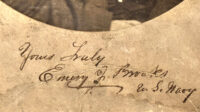 Yours Truly
Emory T. Brooks
U.S. Navy